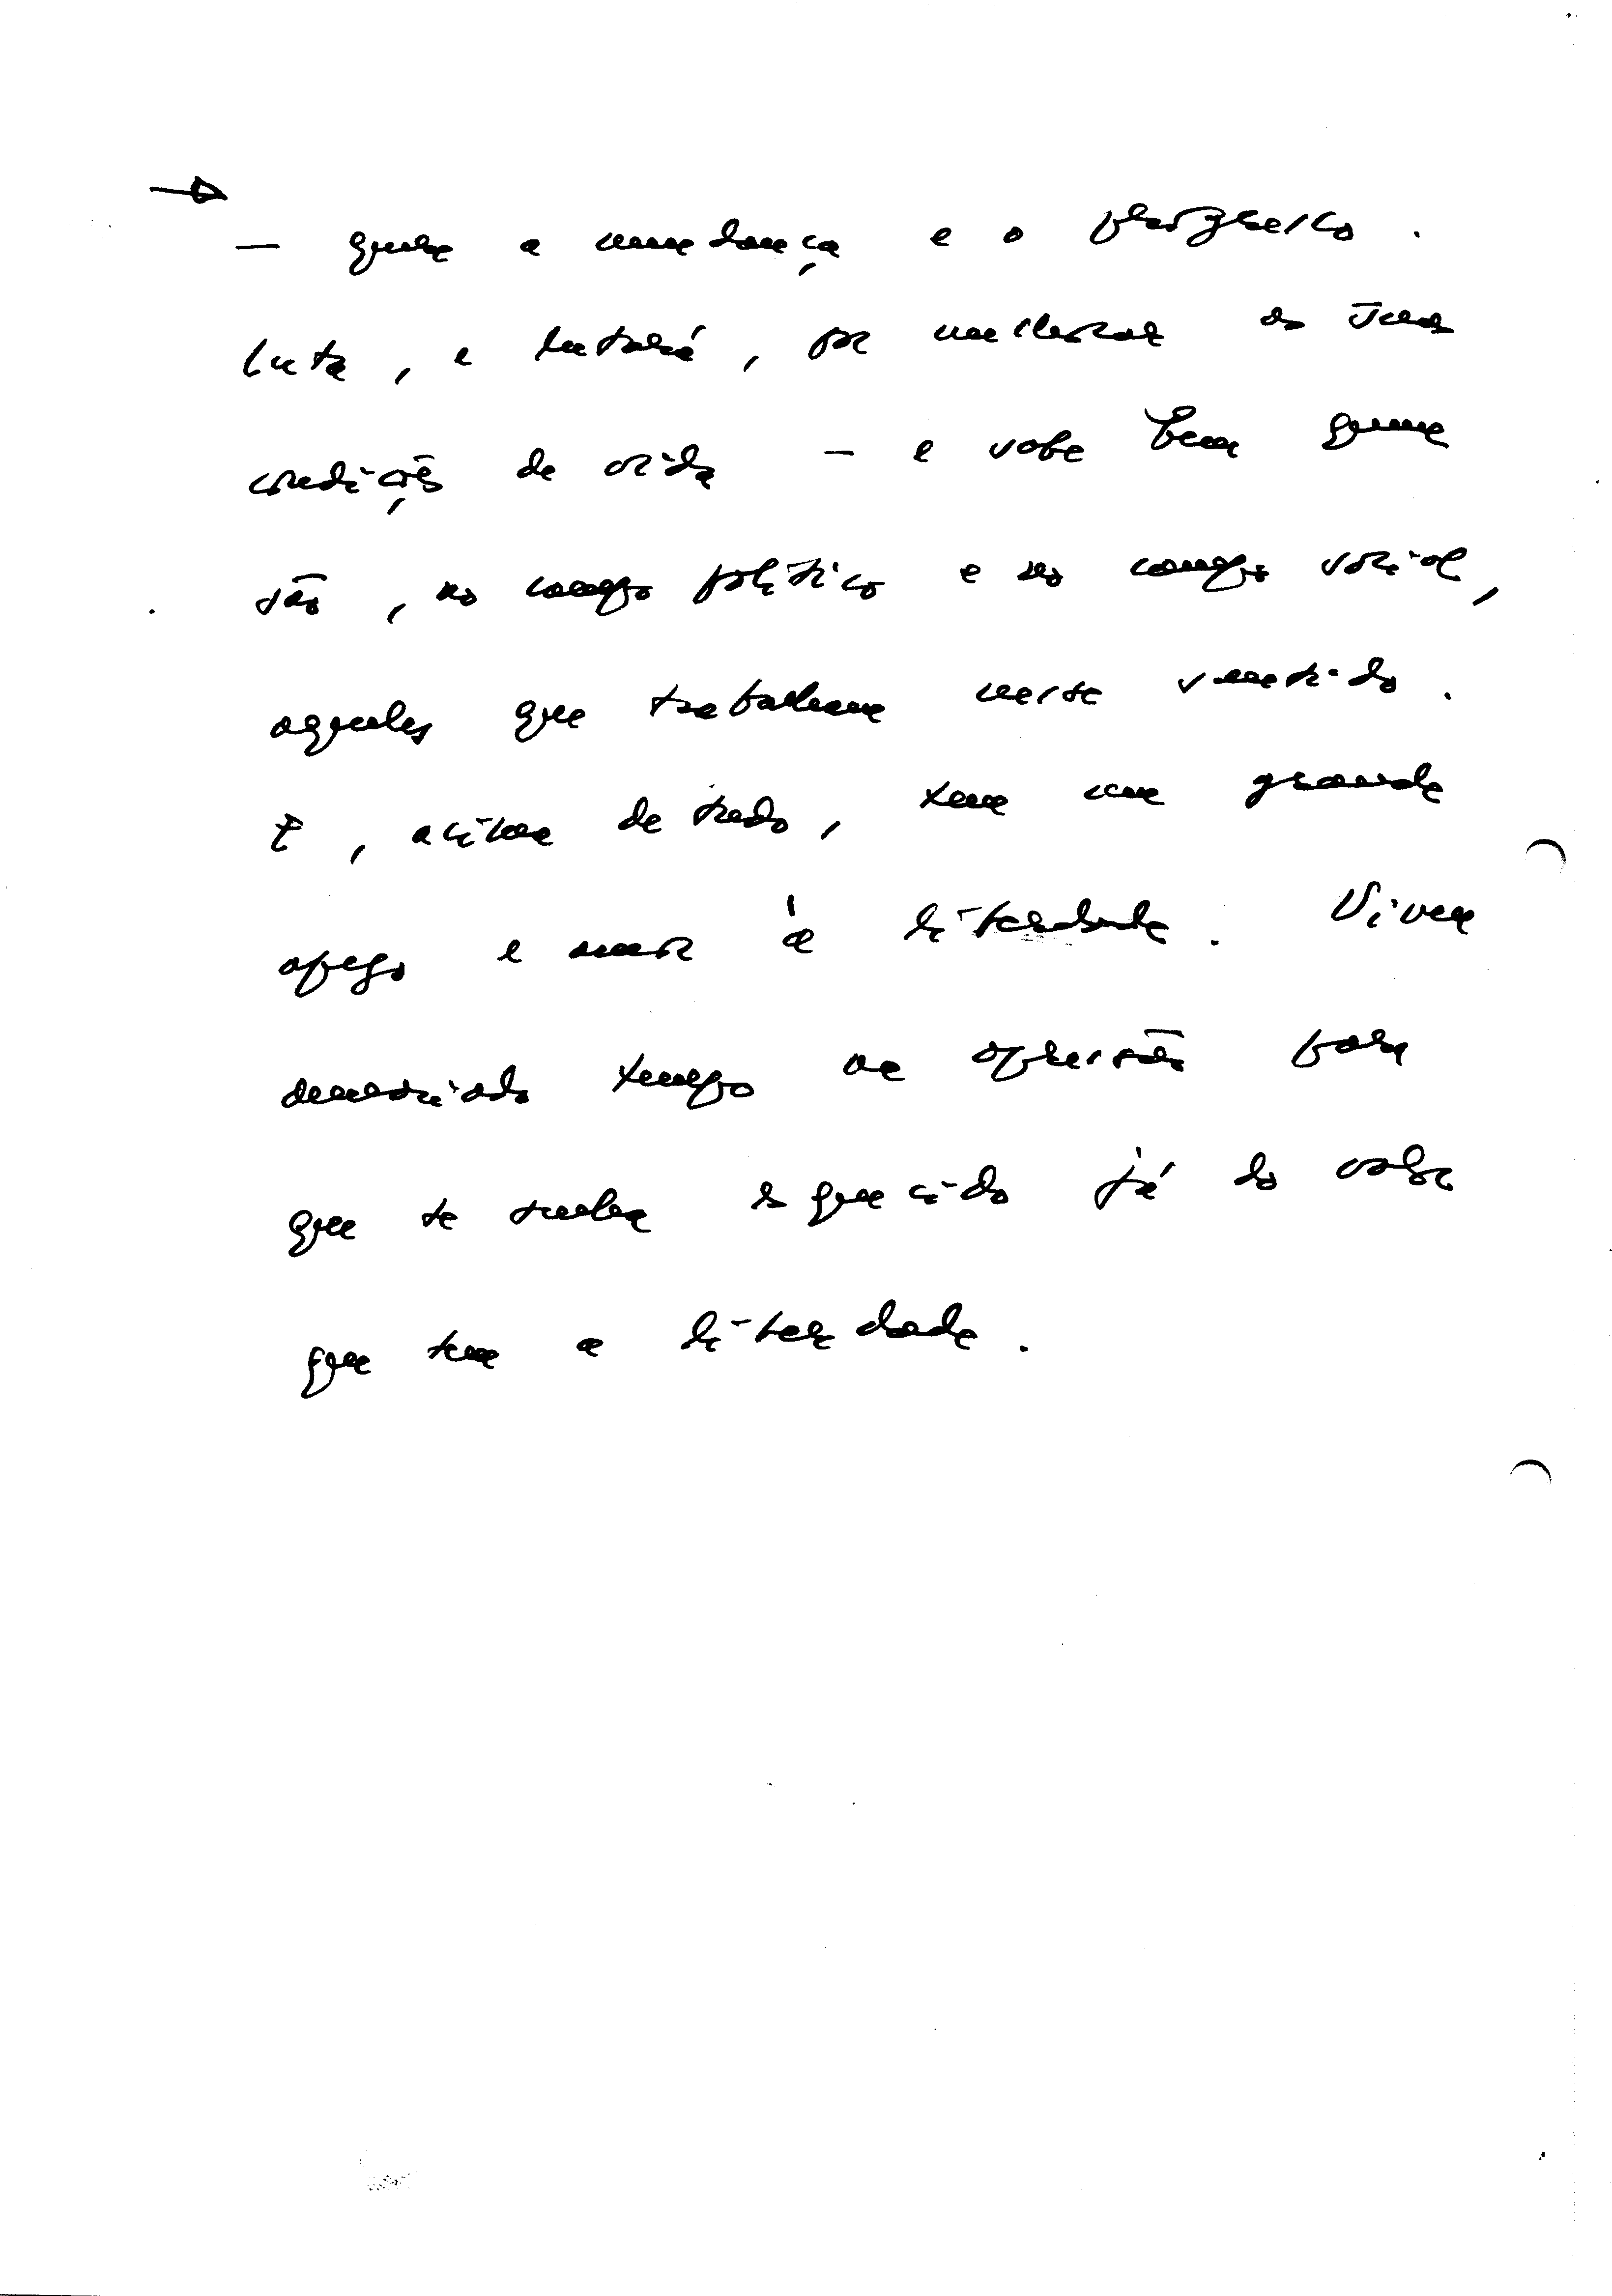 — quer a mudança e o progresso.
luta, e lutará, por melhorar as suas
condições de vida — e sabe bem quem
são, no campo político e no campo social,
aqueles que trabalham nesse sentido.
E, acima de tudo, tem um grande
apego e amor à liberdade. Viveu
demasiado tempo na opressão para
que se tenha esquecido já do valor
que tem a liberdade.